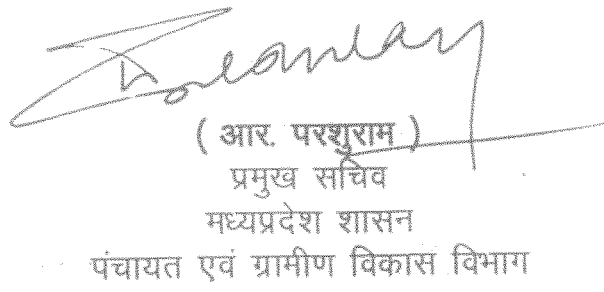 ( आर. परशुराम )
प्रमुख सचिव
मध्यप्रदेश शासन
पंचायत एवं ग्रामीण विकास विभाग